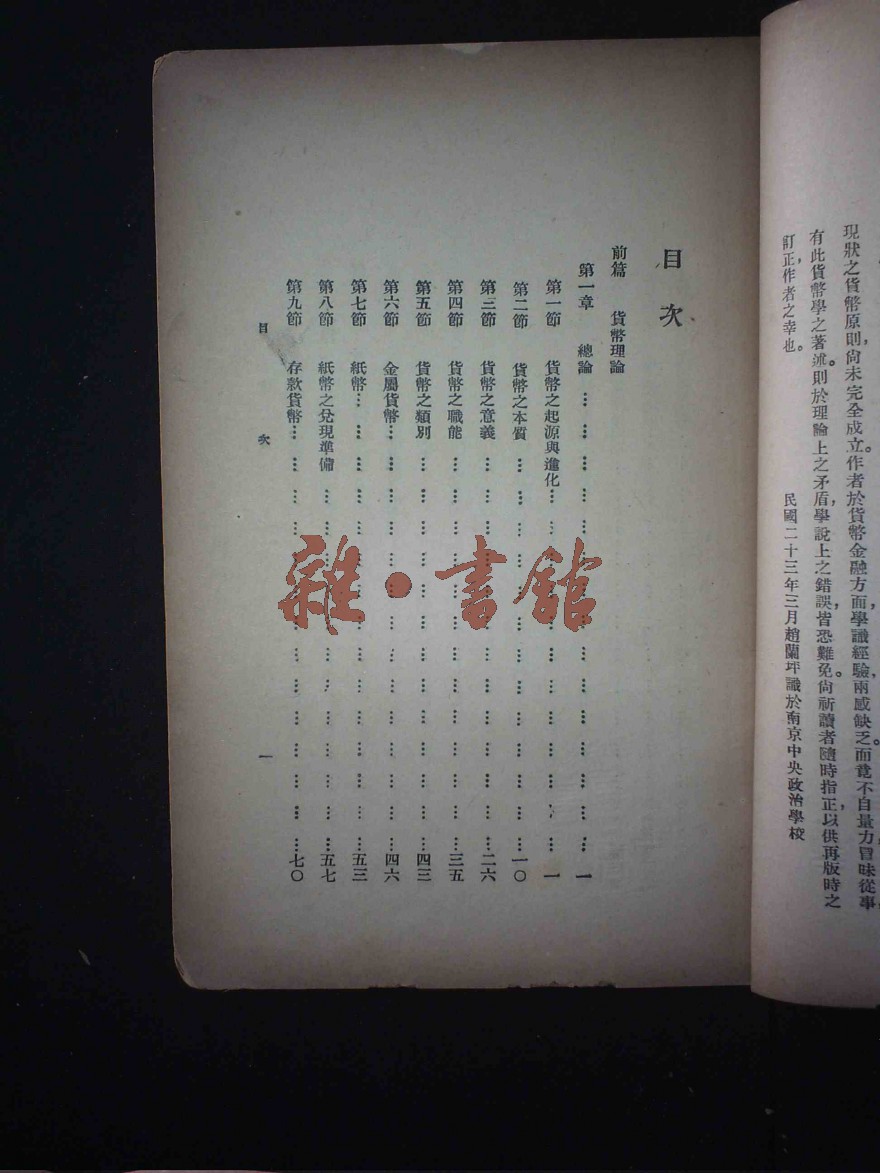 現狀之貨幣原則，尙未完全成立。作者於貨幣金融方面，學識經驗，兩感缺乏。而竟不自量力，冒昧從事，
有此貨幣學之著述。則於理論上之矛盾，學說上之錯誤，皆恐難免。尙祈讀者隨時指正，以供再版時之
訂正，作者之幸也。
民國二十三年三月趙蘭坪識於南京中央政治學校
目次
前篇 貨幣理論
第一章 總論……………………………一
第一節 貨幣之起源與進化……………………………一
第二節 貨幣之本質……………………………一〇
第三節 貨幣之意義……………………………二六
第四節 貨幣之職能……………………………三五
第五節 貨幣之類別……………………………四三
第六節 金屬貨幣……………………………四六
第七節 紙幣……………………………五三
第八節 紙幣之兌現準備……………………………五七
第九節 存款貨幣……………………………七〇
目次 一
雜·書館